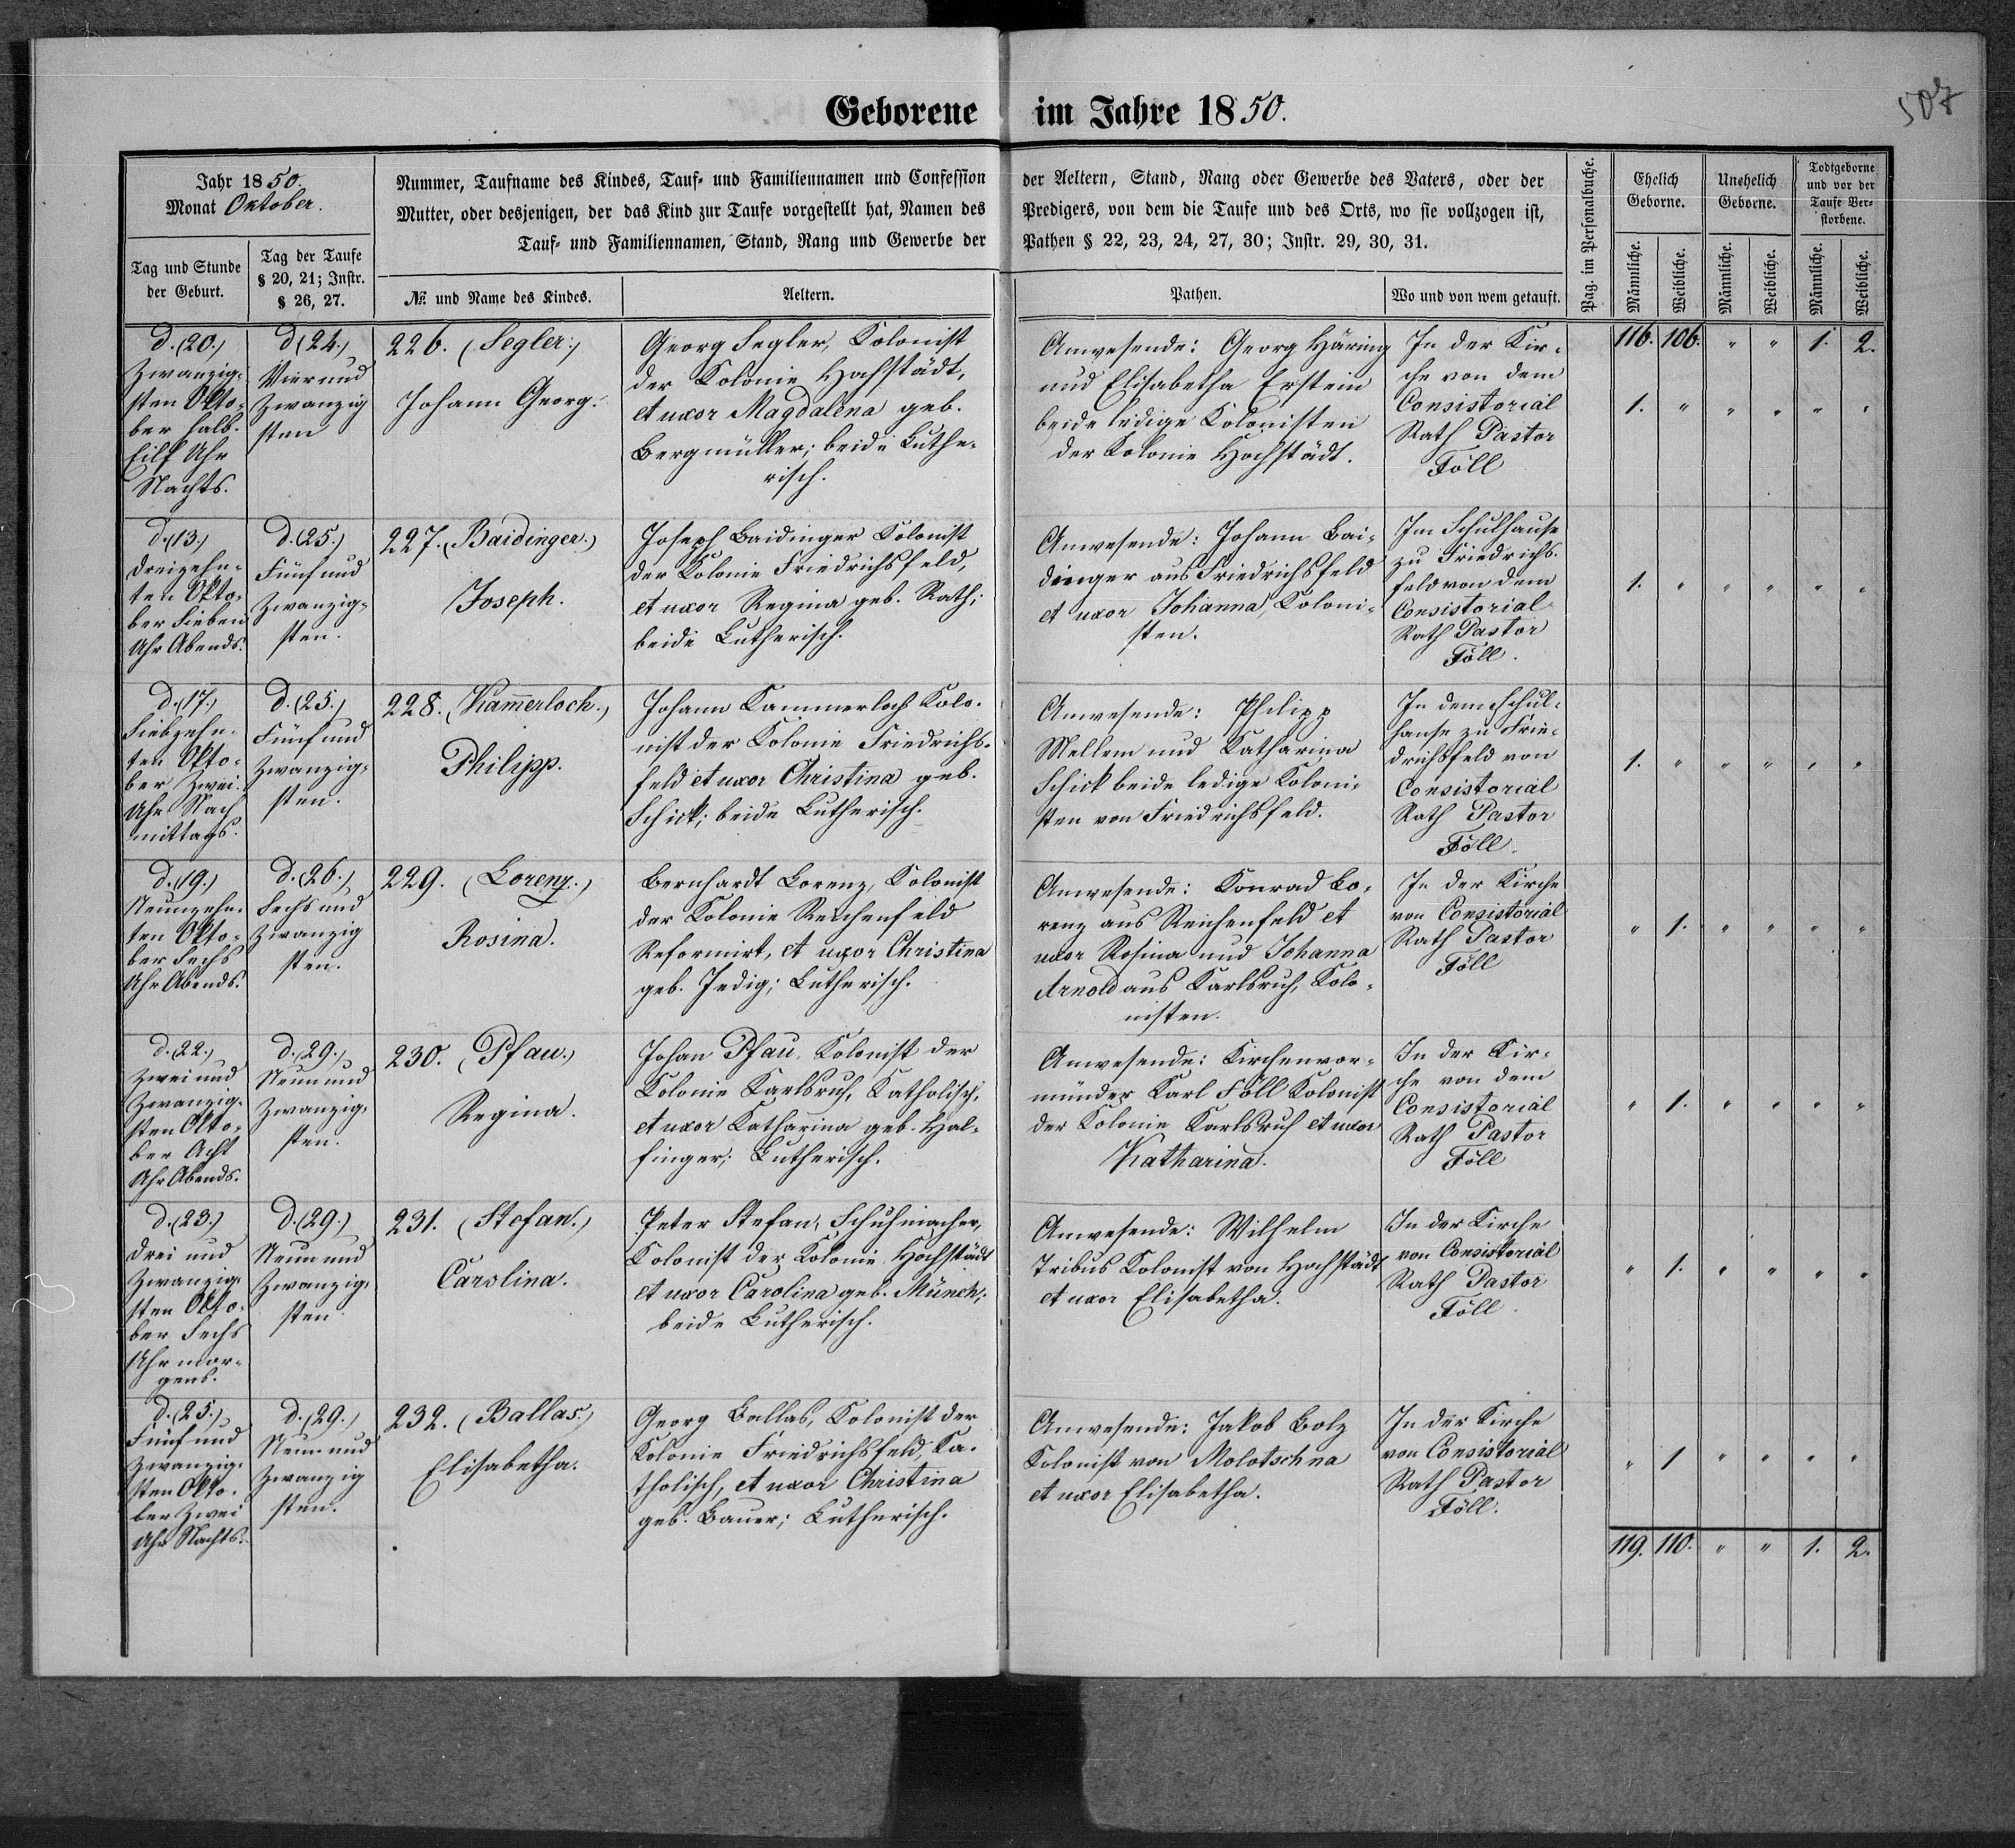 507
Geborene im Jahre 1850.
Jahr 1850.
Monat Oktober.
Tag und Stunde
der Geburt.
Tag der Taufe
§ 20, 21; Instr.
§ 26, 27.
Nummer, Taufname des Kindes, Tauf- und Familiennamen und Confession der Aeltern, Stand, Rang oder Gewerbe des Vaters, oder der
Mutter, oder desjenigen, der das Kind zur Taufe vorgestellt hat, Namen des Predigers, von dem die Taufe und des Orts, wo sie vollzogen ist,
Tauf- und Familiennamen, Stand, Rang und Gewerbe der Pathen § 22, 23, 24, 27, 30; Instr. 29, 30, 31.
№ und Name des Kindes.
Aeltern.
Pathen.
Wo und von wem getauft.
Pag. im Personalbuche.
Ehelich
Geborne.
Unehelich
Geborne.
Todtgeborne
und vor der
Taufe Ver-
storbene.
Männliche.
Weibliche.
Männliche.
Weibliche.
Männliche.
Weibliche.
d. (20.)
Zwanzig-
sten Okto-
ber halb
Eilf Uhr
Nachts.
d (24.)
Vier und
Zwanzig
sten
226. (Segler.)
Johann Georg.
Georg Segler, Kolonist
der Kolonie Hochstädt,
et uxor Magdalena geb.
Bergmüller; beide Luthe-
risch.
Anwesende: Georg Häring
und Elisabetha Erstein
beide ledige Kolonisten
der Kolonie Hochstädt.
In der Kir-
che von dem
Consistorial
Rath Pastor
Föll
116. 106. " " 1. 2.
1. " " " " "
d. (13.)
Dreizehn-
ten Okto-
ber Sieben
Uhr Abends.
d. (25.)
Fünf und
Zwanzig-
sten.
227. (Baidinger.)
Joseph.
Joseph Baidinger Kolonist
der Kolonie Friedrichsfeld,
et uxor Regina geb. Rath;
beide Lutherisch.
Anwesende: Johann Bai-
dinger aus Friedrichsfeld
et uxor Johanna, Koloni-
sten.
Im Schulhause
zu Friedrichs-
feld von dem
Consistorial
Rath Pastor
Föll.
1. " " " " "
d. (17.)
Siebzehn-
ten Okto-
ber Zwei
Uhr Nach
mittags.
d. (25.)
Fünf und
Zwanzig-
sten.
228. (Kam̄erloch.)
Philipp.
Johann Kammerloch Kolo-
nist der Kolonie Friedrichs-
feld et uxor Christina geb.
Schick; beide Lutherisch.
Anwesende: Philipp
Mellem und Katharina
Schick beide ledige Koloni-
sten von Friedrichsfeld.
In dem Schul-
hause zu Frie-
drichsfeld von
Consistorial
Rath Pastor
Föll.
1. " " " " "
d. (19.)
Neunzehn-
ten Okto-
ber Sechs
Uhr Abends.
d. (26.)
Sechs und
Zwanzig
sten.
229. (Lorenz.)
Rosina.
Bernhardt Lorenz, Kolonist
der Kolonie Reichenfeld
Reformirt, et uxor Christina
geb. Jedig; Lutherisch.
Anwesende: Konrad Lo-
renz aus Reichenfeld et
uxor Rosina und Johanna
Arnold aus Karlsruh, Kolo-
nisten.
In der Kirche
von Consistorial
Rath Pastor
Föll
" 1. " " " "
d. (22.)
Zwei und
Zwanzig-
sten Okto-
ber Acht
Uhr Abends.
d. (29.)
Neun und
Zwanzig-
sten.
230. (Pfau.)
Regina.
Johan Pfau, Kolonist der
Kolonie Karlsruh, Katholisch,
et uxor Katharina geb. Hal-
finger; Lutherisch.
Anwesende: Kirchenvor-
münder Karl Föll Kolonist
der Kolonie Karlsruh et uxor
Katharina.
In der Kir-
che von dem
Consistorial
Rath Pastor
Föll
" 1. " " " "
d. (23.)
Drei und
Zwanzig-
sten Okto-
ber Sechs
Uhr mor-
gens.
d. (29.)
Neun und
Zwanzig-
sten
231. (Stefan.)
Carolina.
Peter Stefan, Schuhmacher,
Kolonist der Kolonie Hochstädt
et uxor Carolina geb. Münch;
beide Lutherisch.
Anwesende: Wilhelm
Tribus Kolonist von Hochstädt
et uxor Elisabetha.
In der Kirche
von Consistorial
Rath Pastor
Föll.
" 1. " " " "
d. (25.)
Fünf und
Zwanzig-
sten Okto-
ber Zwei
Uhr Nachts.
d. (29.)
Neun und
Zwanzig
sten.
232. (Ballas.)
Elisabetha.
Georg Ballas, Kolonist der
Kolonie Friedrichsfeld, Ka-
tholisch, et uxor Christina
geb. Bauer; Lutherisch.
Anwesende: Jakob Bolz
Kolonist von Molotschna
et uxor Elisabetha.
In der Kirche
von Consistorial
Rath Pastor
Föll.
" 1 " " " "
119. 110. " " 1. 2.